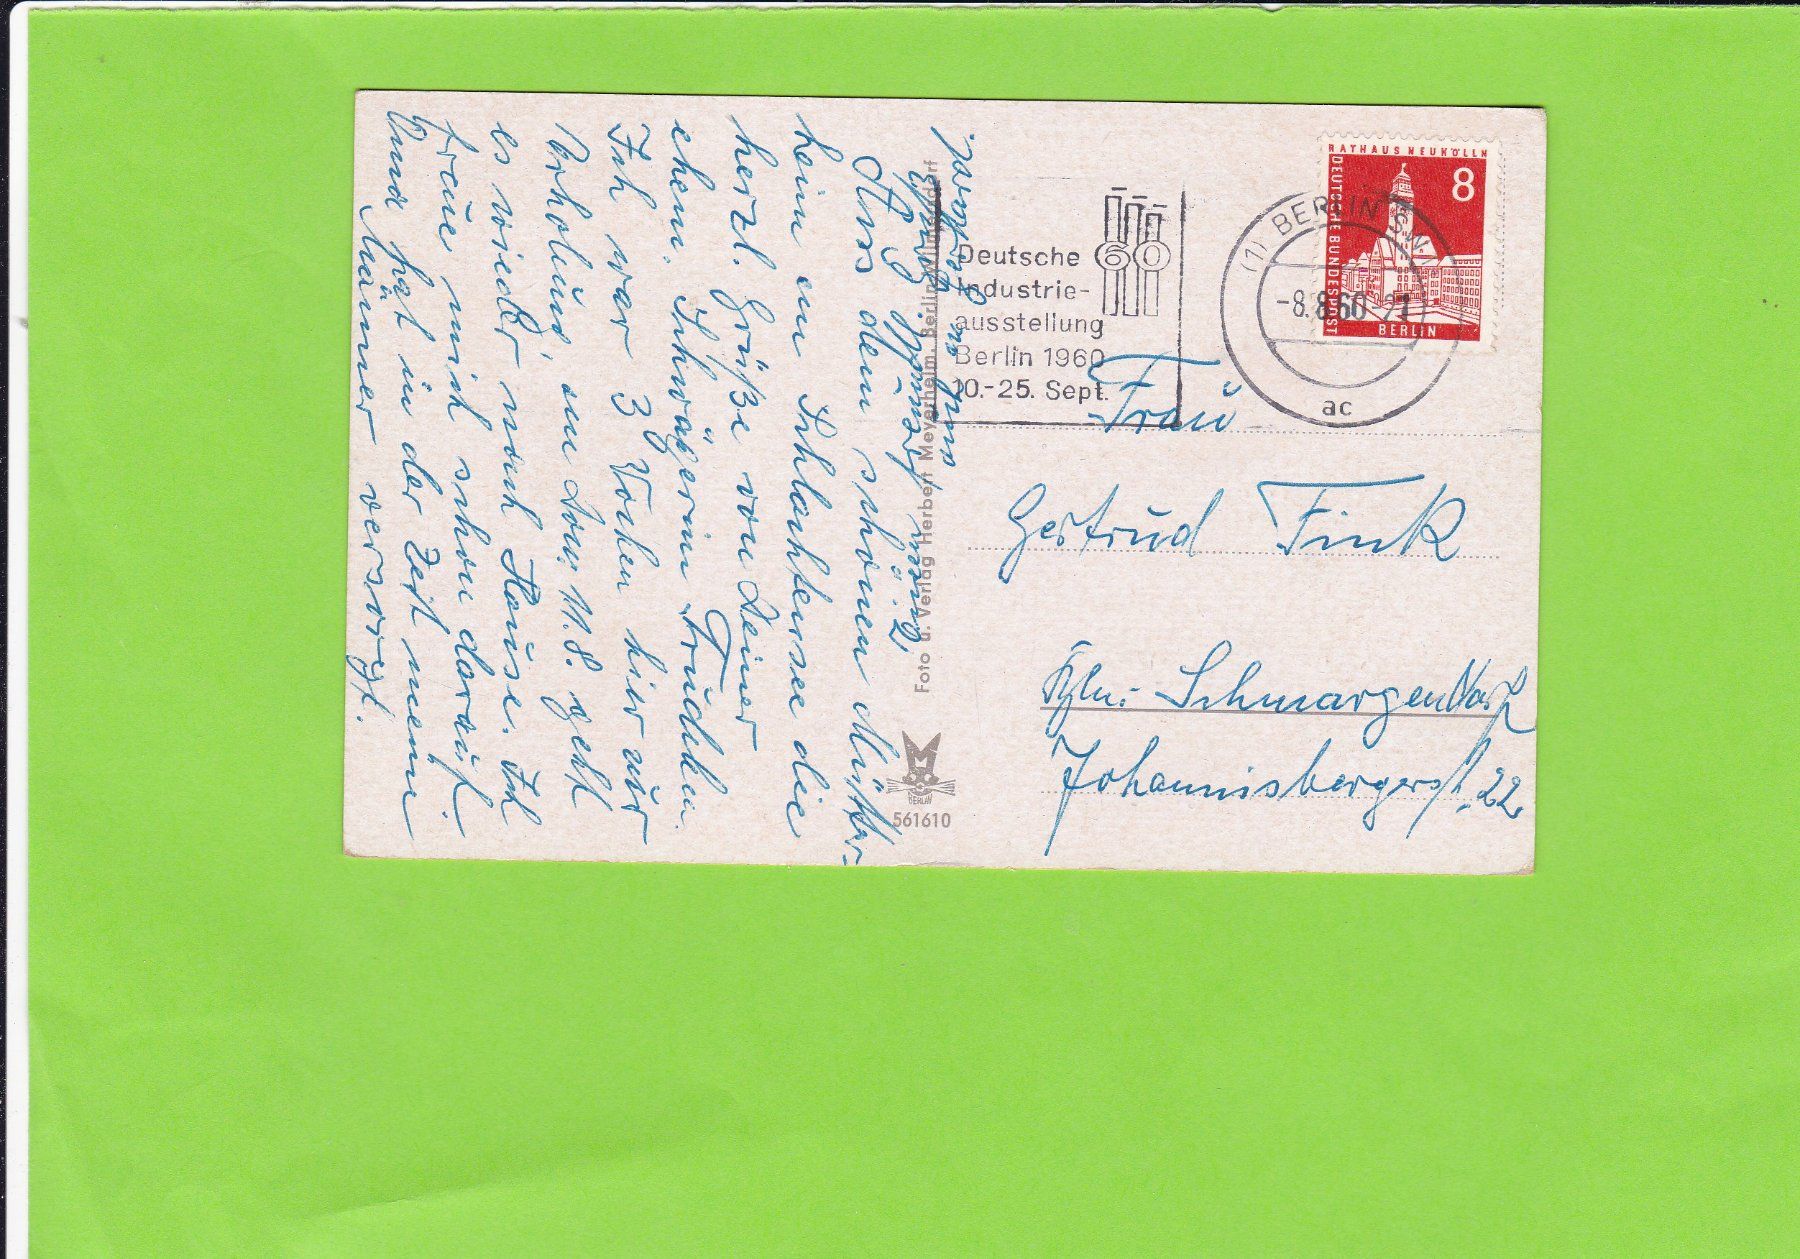 RATHAUS NEUKÖLLN
DEUTSCHE BUNDESPOST
8
BERLIN
(1) BERLIN SW
-8.8.60-21
ac
Deutsche
Industrie-
ausstellung
Berlin 1960
10.-25. Sept.
60
Frau
Gertrud Fink
Bln: Schmargendorf
Johannisbergerstr. 22
Foto u. Verlag Herbert Meyerheim, Berlin-Wilmersdorf
BERLIN
561610
Aus dem schönen Mütter-
heim am Schlachtensee die
herzl. Grüße von Deiner
ehem. Schwägerin Trudchen.
Ich war 3 Wochen hier zur
Erholung, am Don. 11.8. geht
es wieder nach Hause. Ich
freue mich schon darauf.
Oma hat in der Zeit meine
Männer versorgt.